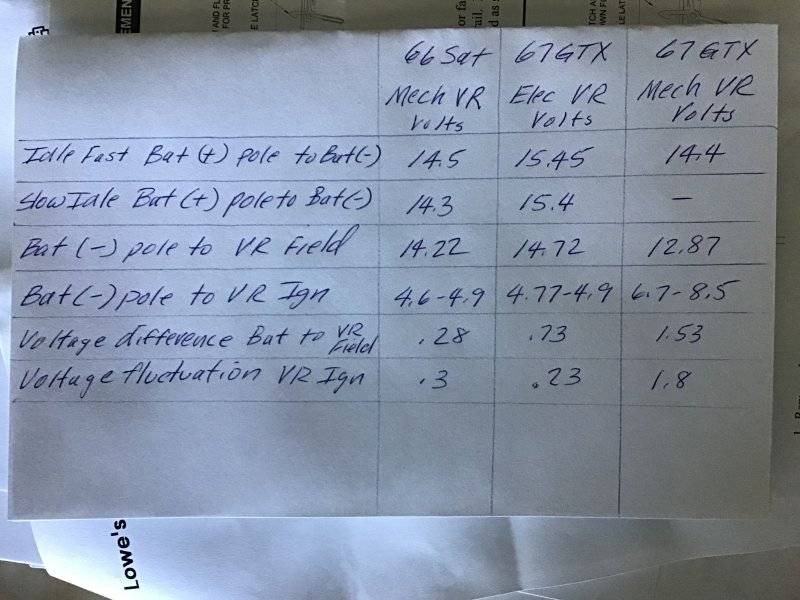 EMEN
AND FL
FOR PR
E LATC
or fa
rail.
d as s
66 Sat 67 GTX 67 GTX
Mech VR Elec VR Mech VR
Volts Volts Volts
Idle Fast Bat (+) pole to Bat(-) 14.5 15.45 14.4
Slow Idle Bat (+) pole to Bat(-) 14.3 15.4 —
Bat (-) pole to VR Field 14.22 14.72 12.87
Bat (-) pole to VR Ign 4.6-4.9 4.77-4.9 6.7-8.5
Voltage difference Bat to VR Field .28 .73 1.53
Voltage fluctuation VR Ign .3 .23 1.8
Lowe's